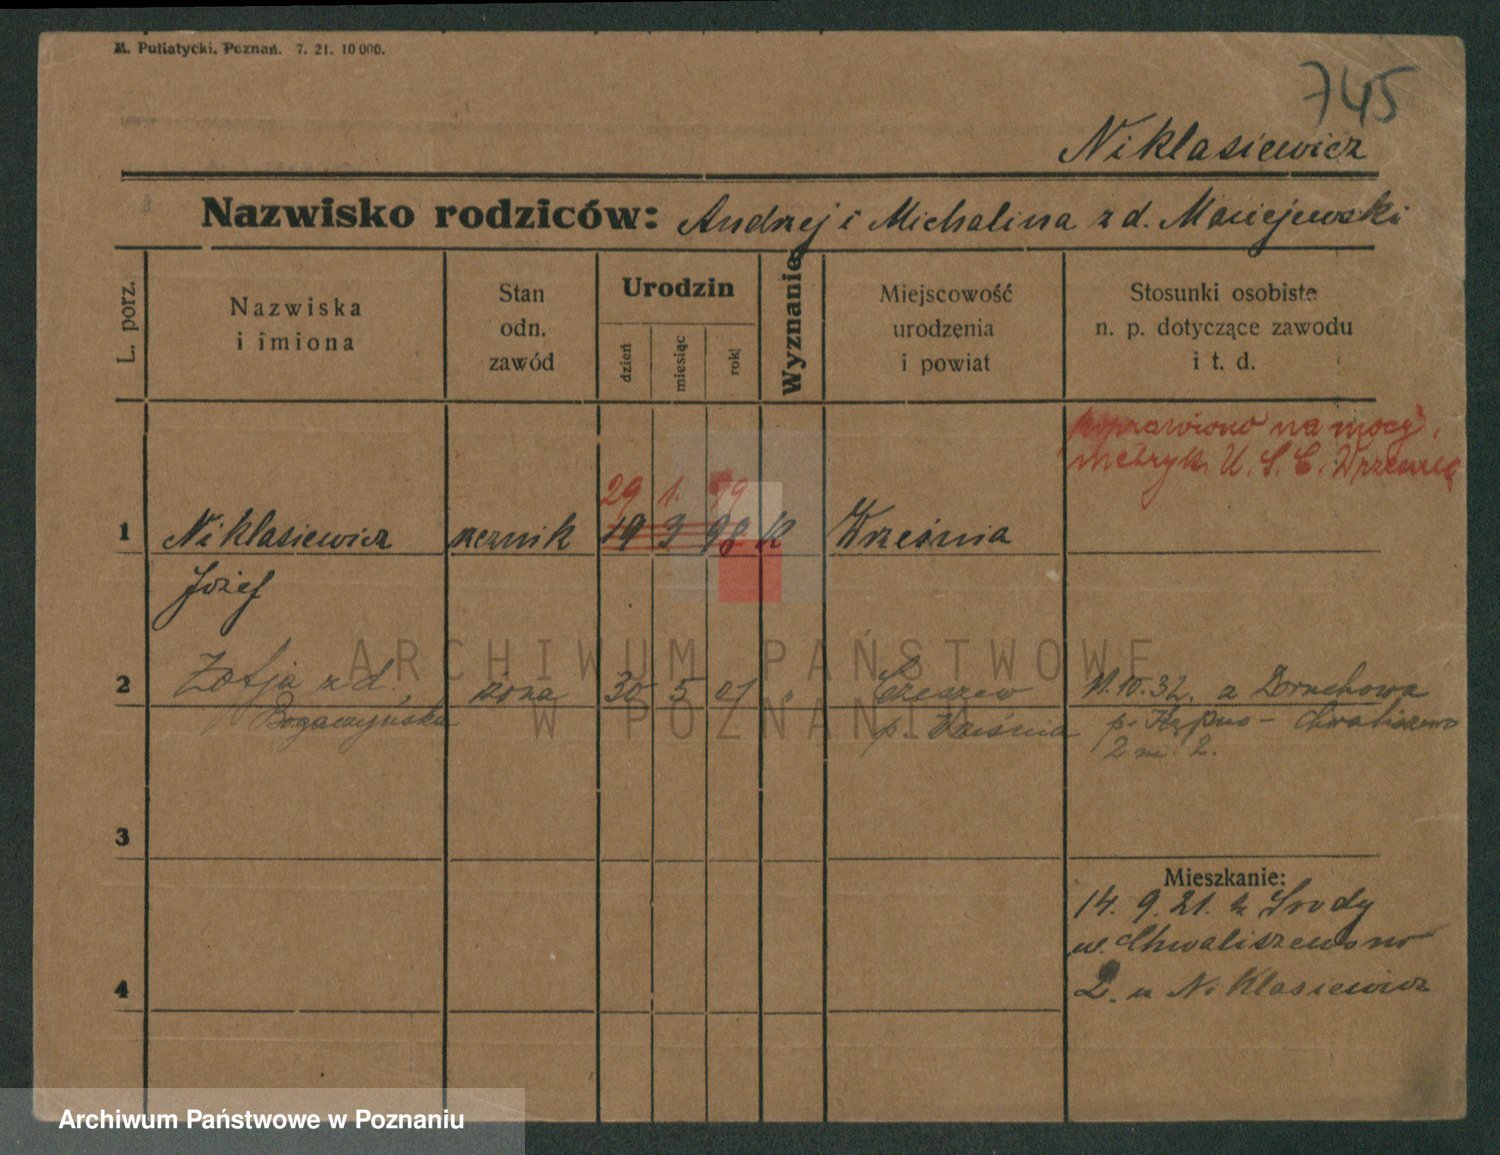 M. Putiatycki, Poznań. 7. 21. 10 000.
745
Niklasiewicz
Nazwisko rodziców: Andrzej i Michalina z d. Maciejewski
L. porz.
Nazwiska
i imiona
Stan
odn.
zawód
Urodzin
dzień
miesiąc
rok
Wyznanie
Miejscowość
urodzenia
i powiat
Stosunki osobiste
n. p. dotyczące zawodu
i t. d.
poprawiono na mocy
metryk. U. S. C. Września
29 1. 99
1 Niklasiewicz rzeźnik 19 3 98 K Września
Józef
2 Zofja z d. żona 30 5 01 " Czeszewo 11.10.32. z
Bogaczyńska p. Września p. Kępno - Chwaliszewo
2 m. 2.
3
Mieszkanie:
14. 9. 21. z Środy
w. Chwaliszewo
4
2. u Niklasiewicz
ARCHIWUM PAŃSTWOWE
W POZNANIU
Archiwum Państwowe w Poznaniu